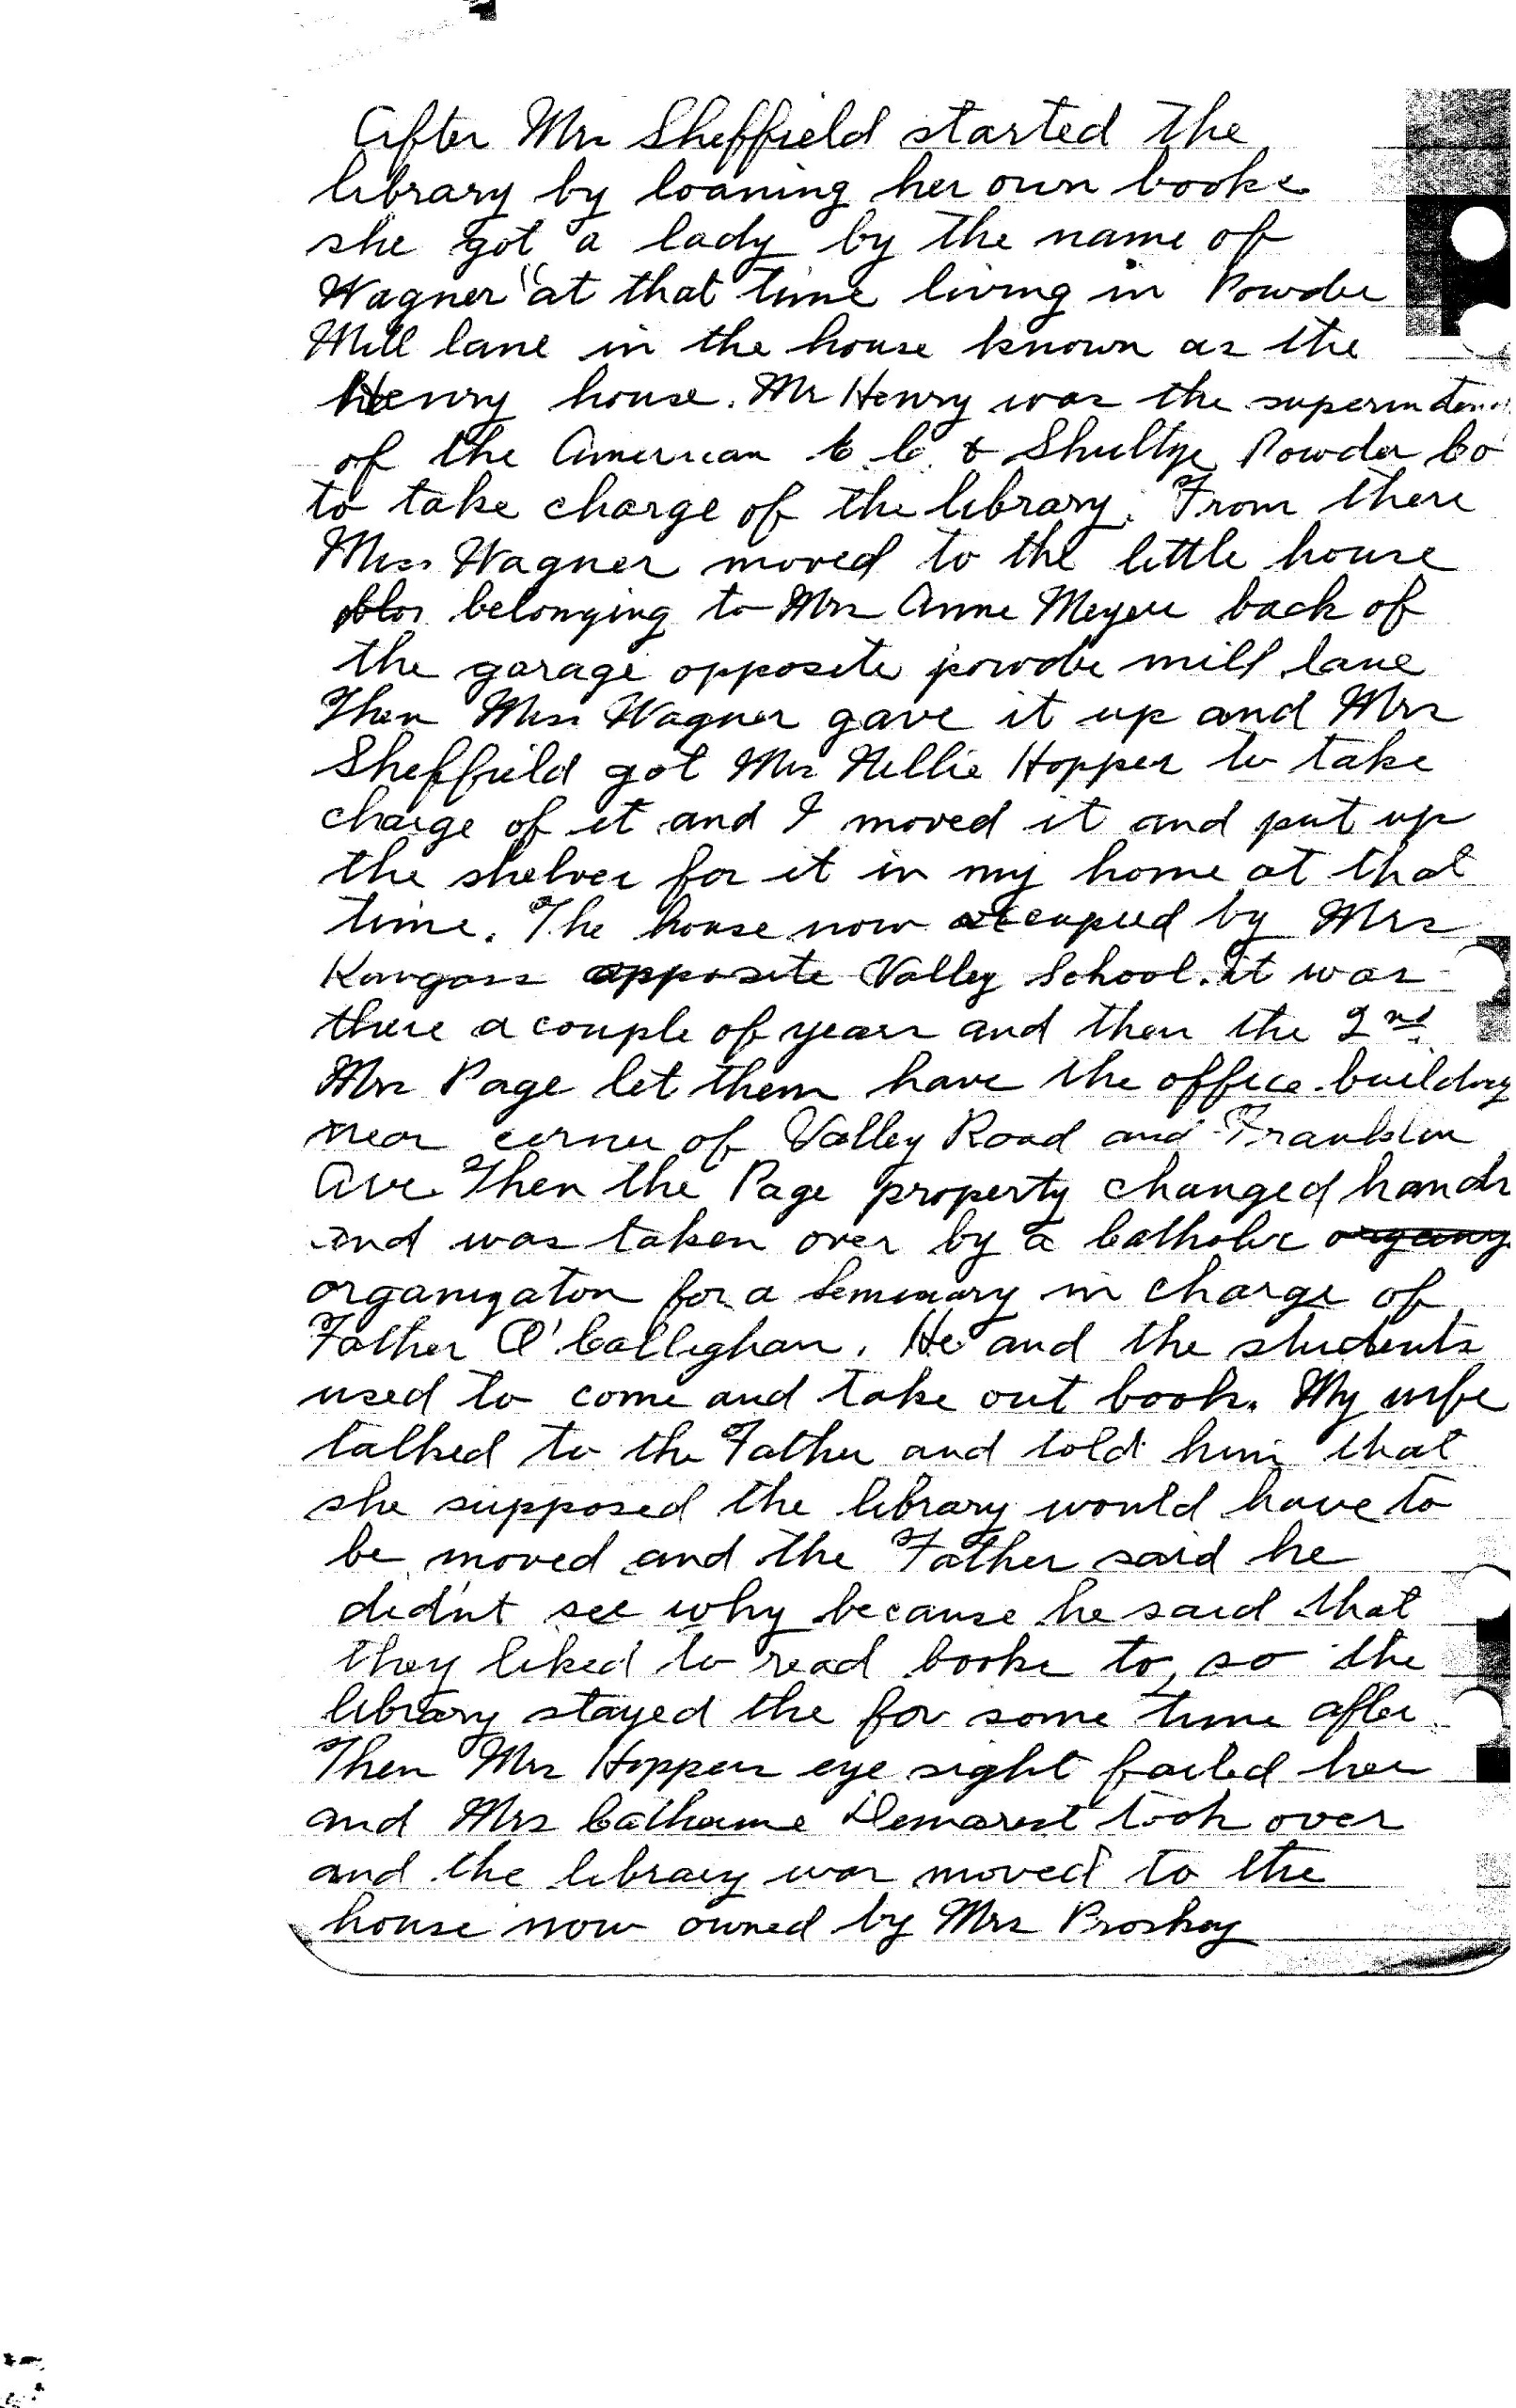 After Mrs Sheffield started the
library by loaning her own books
she got a lady by the name of
Wagner "at that time living in Powder
Mill lane in the house known as the
Henry house. Mr Henry was the superintend
of the American E. C. & Shultze Powder Co
to take charge of the library. From there
Miss Wagner moved to the little house
belonging to Mrs Anne Meyers back of
the garage opposite powder mill lane
Then Miss Wagner gave it up and Mrs
Sheffield got Mrs Nellie Hopper to take
charge of it and I moved it and put up
the shelves for it in my home at that
time. The house now occupied by Mrs
opposite Valley School. it was
there a couple of years and then the 2nd
Mrs Page let them have the office building
near corner of Valley Road and Franklin
Ave Then the Page property changed hands
and was taken over by a Catholic
organizaton for a Seminary in charge of
Father O'Calleghan. He and the students
used to come and take out books. My wife
talked to the Father and told him that
she supposed the library would have to
be moved and the Father said he
did'nt see why because he said that
they liked to read books to, so the
library stayed the for some time after.
Then Mrs Hoppers eye sight failed her
and Mrs Catherine Demarest took over
and the library was moved to the
house now owned by Mrs Proskey